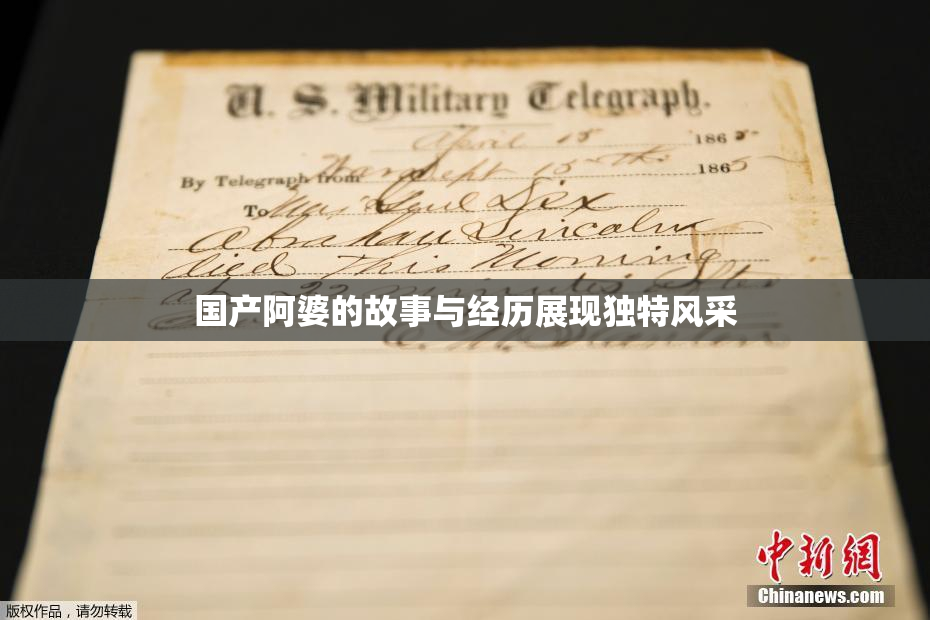 U. S. Military Telegraph.
April 15 1865
By Telegraph from War Dept 15th 1865
To Maj Genl Dix
Abraham Lincoln
died This Morning
at 22 minutes after
国产阿婆的故事与经历展现独特风采
中新網
Chinanews.com
版权作品，请勿转载